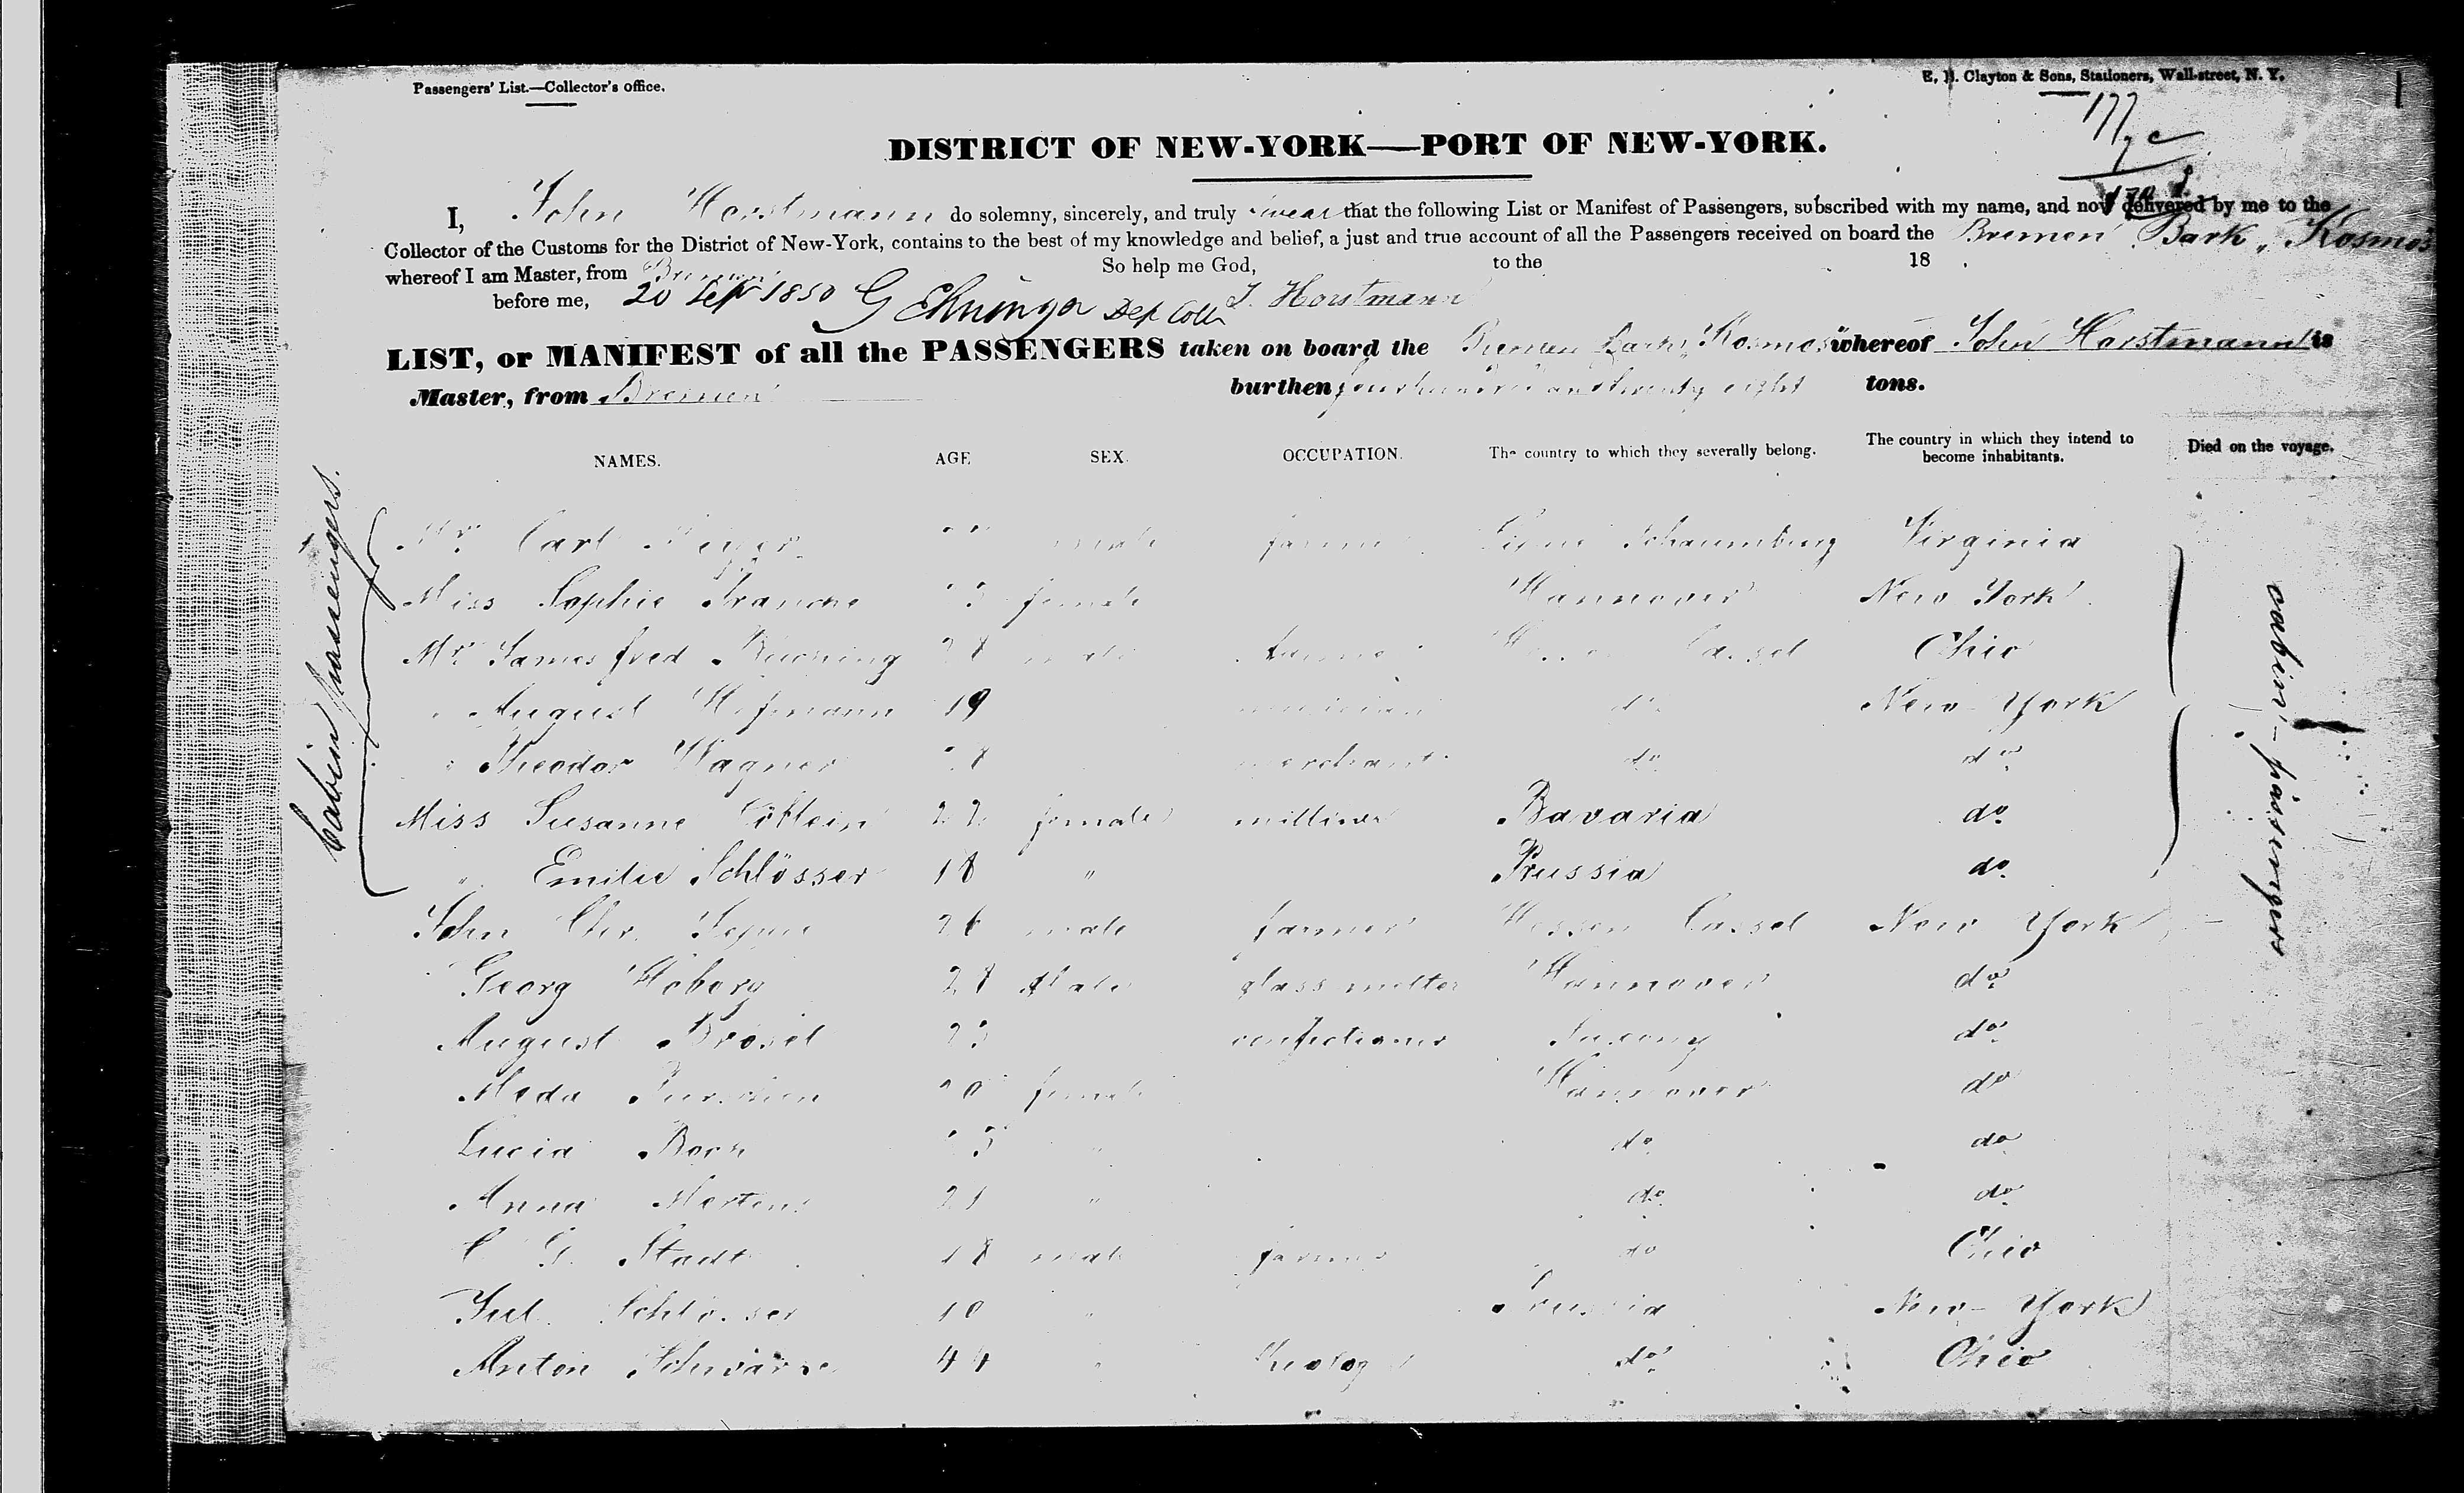 Passengers' List.—Collector's office.
E. H. Clayton & Sons, Stationers, Wall-street, N. Y.
177
DISTRICT OF NEW-YORK—PORT OF NEW-YORK.
I, John Horstmann do solemny, sincerely, and truly swear that the following List or Manifest of Passengers, subscribed with my name, and now delivered by me to the
Collector of the Customs for the District of New-York, contains to the best of my knowledge and belief, a just and true account of all the Passengers received on board the Bremen Bark „Kosmos
whereof I am Master, from Bremen So help me God, to the 18 .
before me, 20 Sept 1850 Dep Colln J. Horstmann
LIST, or MANIFEST of all the PASSENGERS taken on board the Bremen Bark „Kosmos" whereof John Horstmann is
Master, from Bremen burthen four hundred and twenty eight tons.
NAMES. AGE SEX. OCCUPATION. The country to which they severally belong. The country in which they intend to become inhabitants. Died on the voyage.
Cabin passengers.
Mr. Carl Meyer male farmer Schaumburg Virginia
Miss Sophie Francke female Hannover New York
Mr. James fred 28 male farmer Hessen Cassel Ohio
" August Hofmann 19 do New-York
" Theodor Wagner 28 merchant do do
Miss Susanne 22 female milliner Bavaria do
" Emilie Schlösser 18 " Prussia do
cabin-passengers
John Chr. 26 male farmer Hessen Cassel New York
Georg Hoberg 28 male glass melter Hannover do
August Brösel 23 confectioner Saxony do
Meda 20 female Hannover do
Lucia " do do
Anna Mertens 21 " do do
C. G. Stadt 18 male farmer do Ohio
Jul. Schlösser 10 " Prussia New-York
Anton Schwarze 44 " theolog do Ohio